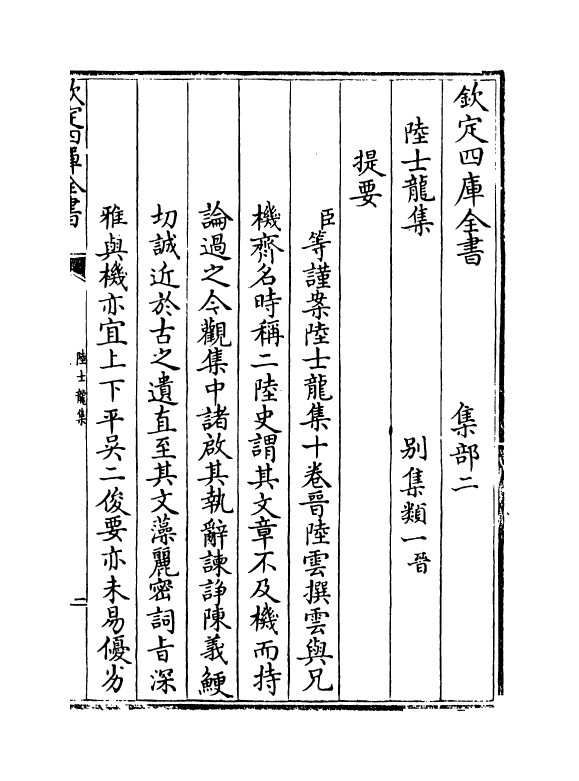 欽定四庫全書　集部二
陸士龍集　別集類一晉
提要
臣等謹案陸士龍集十卷晉陸雲撰雲與兄
機齊名時稱二陸史謂其文章不及機而持
論過之今觀集中諸啟其執辭諫諍陳義鯁
切誠近於古之遺直至其文藻麗密詞旨深
雅與機亦宜上下平吳二俊要亦未易優劣
欽定四庫全書　陸士龍集　二